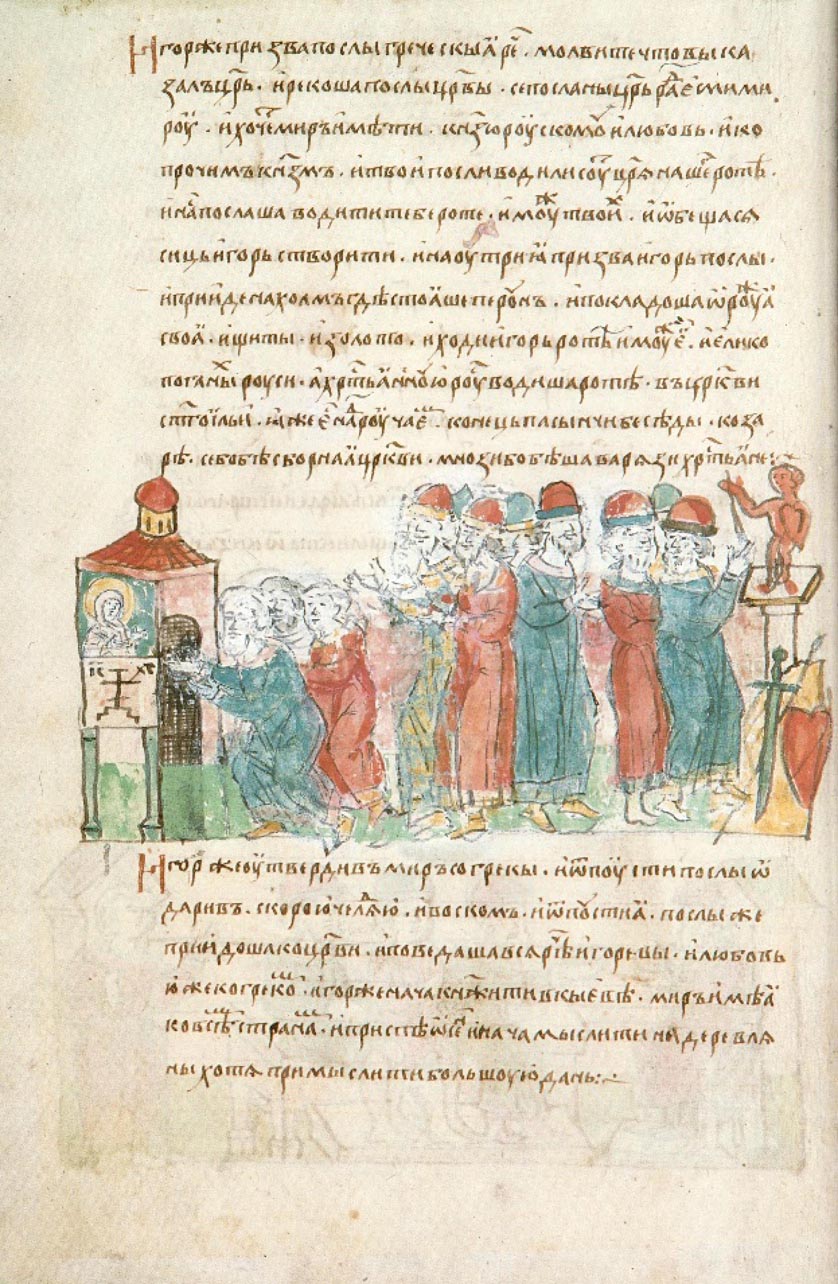 Игорже призва послы греческыꙗ реⷱ҇ · молвите чтовы ка
залъ цр҃ь · и рекоша послы цр҃вы · се посла ны цр҃ь раⷣ есми ми
роу · и хощеⷨ миръ имѣти · кнѧзю роускомоу и любовь · и ко
прочимъ кнѧзмъ · и твои посли водили соуⷮ цр҃ѧ нашеⷢ ротѣ ·
и наⷭ послаша водити тебе роте · и моуⷤ твоиⷯ · и ѡбещасѧ
сице игорь створити · и наоутриꙗ призва игорь послы ·
и прииде на холмъ гдѣ стоꙗше перунъ · и покладоша ѡроуⷤꙗ
своꙗ · и щиты · и золото · и ходи игорь ротѣ и моуⷤ еⷢ · и елико
поганыⷯ роуси · а хрⷭтьаноую роуⷭ водиша ротѣ · въ цр҃кви
ст҃го ильи · ꙗже еⷭ наⷣ роучаеⷨ · конець пасынчи беседы · коза
ре · се бо бѣ сборнаꙗ цр҃кви · мнози бо бѣша варѧзи хрⷭтьане :
іс хс
Игорже оутвердивъ миръ со грекы · и ѡпоусти послы ѡ
даривъ · скорою и челаⷣю · и воскомъ · и ѡпоусти ꙗ · послы же
приидоша ко цр҃ви · и поведаша всѧ рѣⷱ игоревы · и любовь
юже ко грекоⷨ · игорже нача кнѧжити в кыевѣ · миръ имѣꙗ
ко всѣⷨ странаⷨ · и приспѣ ѡсеⷩ и нача мыслити на деревлѧ
ны хотѧ примыслити большоую дань :